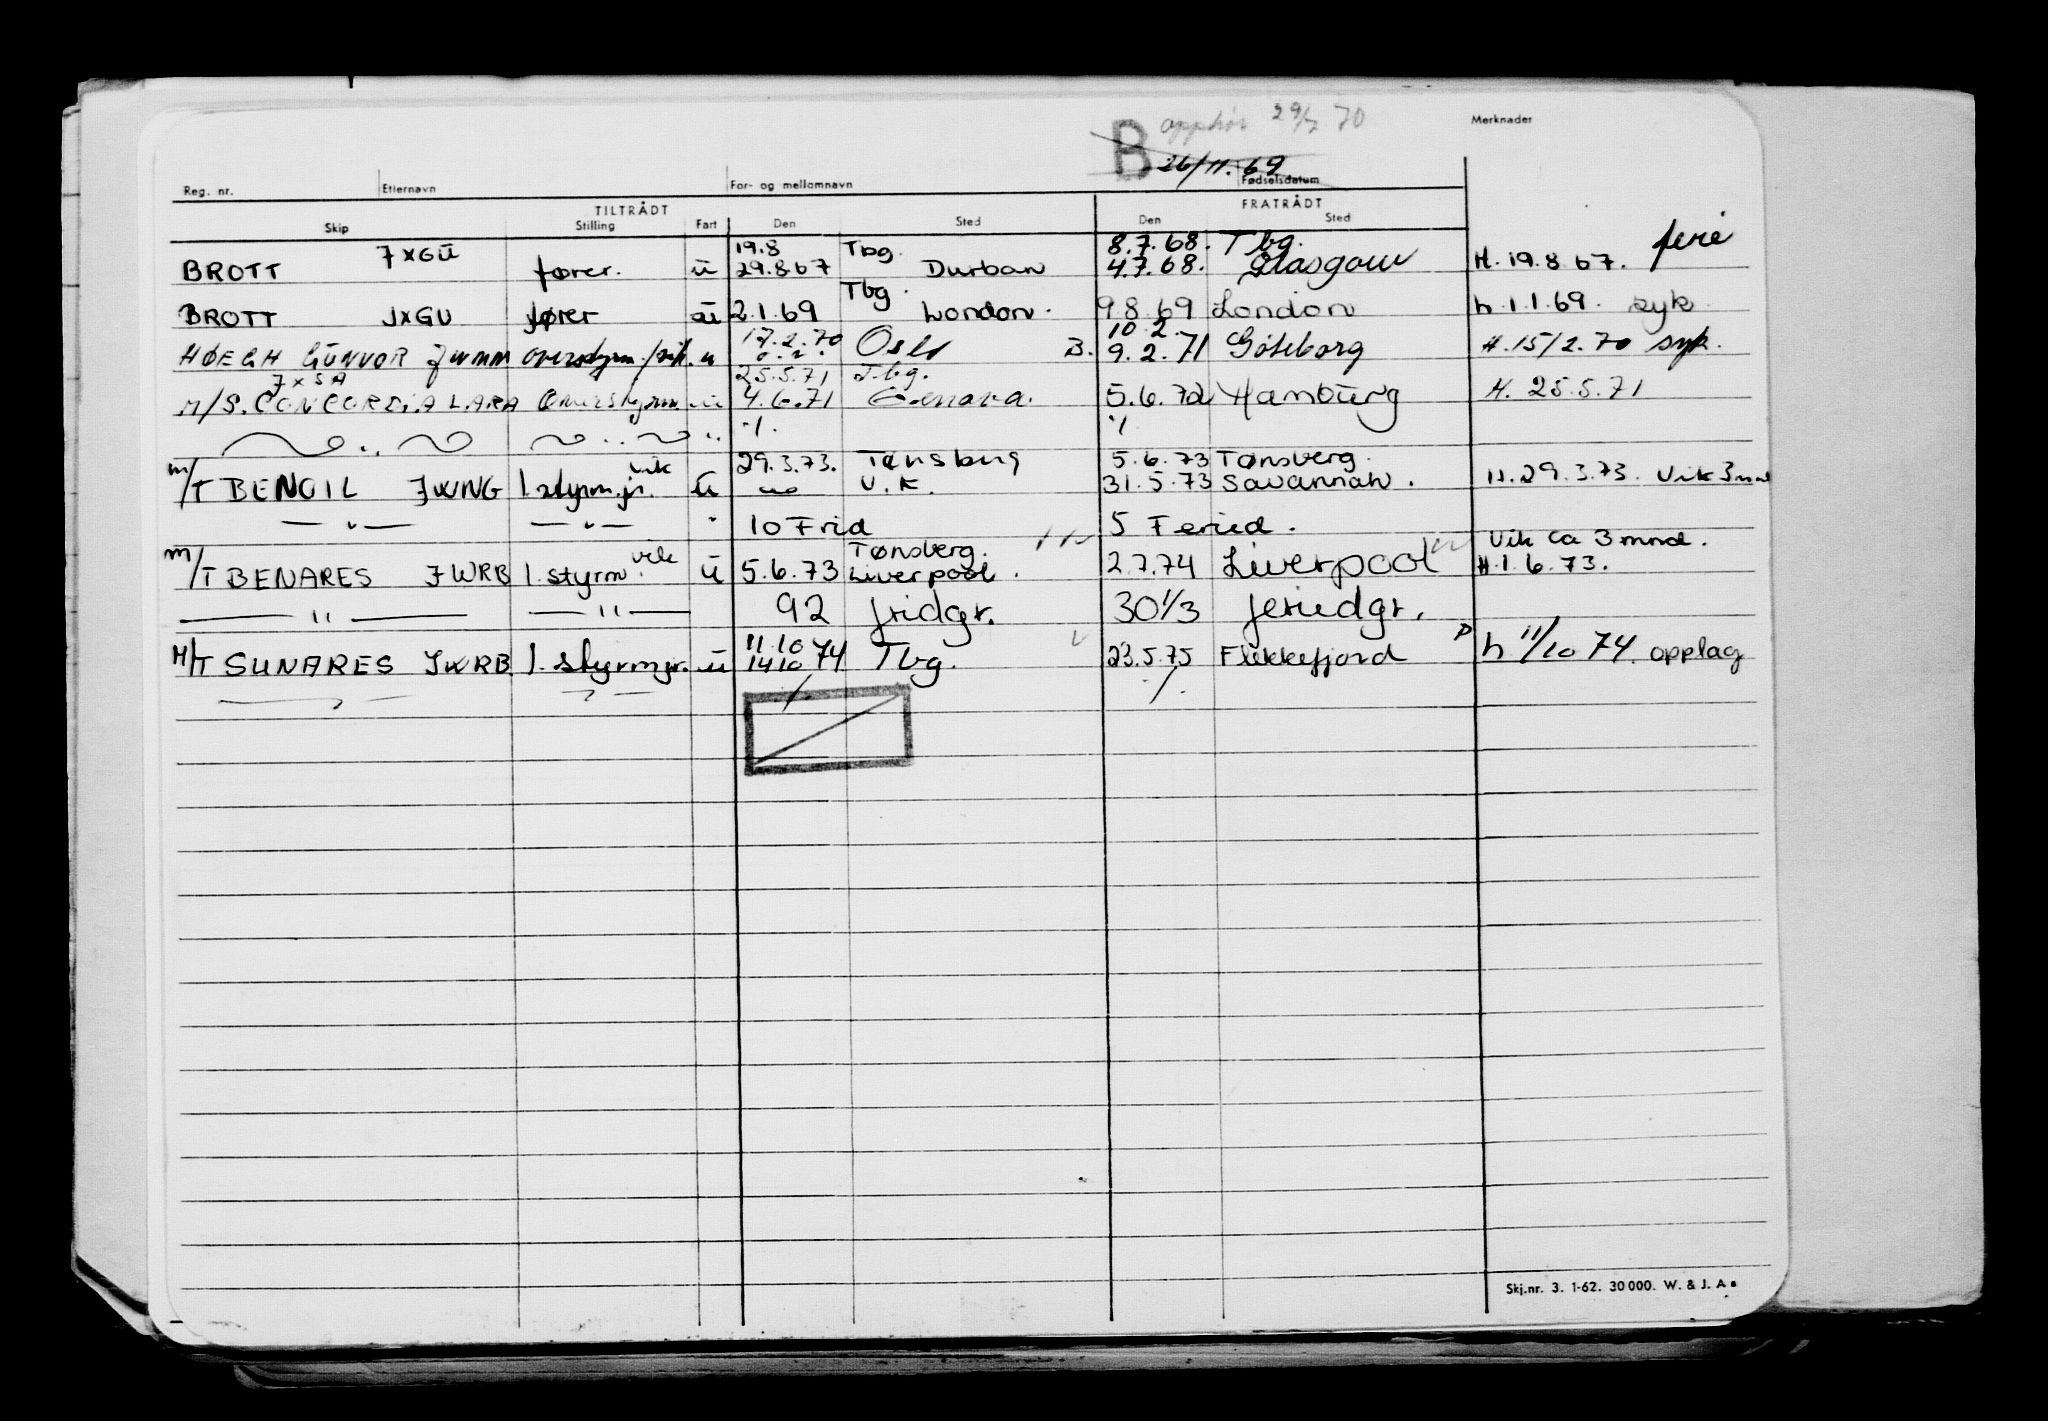 B opphør 29/7 70
Merknader
26/11.69
Reg. nr. Etternavn For- og mellomnavn Fødselsdatum
TILTRÅDT FRATRÅDT
Skip Stilling Fart Den Sted Den Sted
19.8 Tbg. 8.7.68. Tbg. ferie
BROTT JXGU fører. u 29.8.67 Durban 4.7.68. Glasgow H. 19.8.67.
Tbg.
BROTT JXGU fører u 2.1.69 London. 9.8.69 London h.1.1.69. syk
17.2.70 10.2.
HØEGH GUNVOR overstyrm./vik. u Oslo B. 9.2.71 Göteborg H.15/2.70 syk.
JXSA 25.5.71 Tbg.
M/S. CONCORDIA LARA Overstyrm. u 4.6.71 Genova. 5.6.72 Hamburg H. 25.5.71
— " — — " — " ·/· ·/·
vik 29.3.73. Tønsberg 5.6.73 Tønsberg.
M/T BENOIL JWNG 1. styrm.jr. u U.K. 31.5.73 Savannah. H.29.3.73. Vik 3 mnd
— " — — " — " 10 Frid 5 Feried.
vik Tønsberg. Vik ca 3 mnd.
M/T BENARES JWRB 1. styrm. u 5.6.73 Liverpool. 2.7.74 Liverpool H.1.6.73.
— " — — " — 92 fridgr. 30 1/3 feriedgr.
11.10
M/T SUNARES JWRB 1. styrm.jr. u 14.10 74 Tbg. 23.5.75 Flekkefjord P h 11/10 74. opplag
— " — — " — ·/· ·/·
Skj.nr. 3. 1-62. 30 000. W. & J. A s